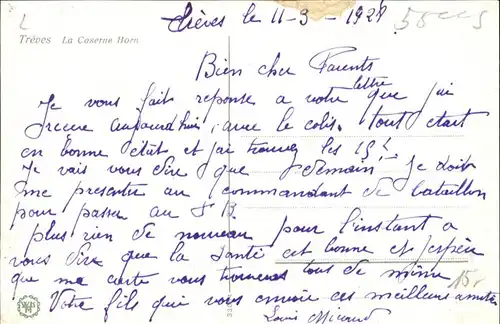 Trèves le 11-9-1921
Trèves La Caserne Horn
Bien cher Parents
lettre
Je vous fait reponse a votre que j'ai
recue aujourd'hui, avec le colis. tout etait
en bonne état et j'ai trouvé les 15f.
Je vais vous dire que demain je doit
me presenter au commandant de bataillon
pour passer au
plus rien de nouveau pour l'instant a
vous dire que la santé est bonne et j'espère
que ma carte vous trouveras tous de même
Votre fils qui vous envoie ces meilleurs amitiés
Louis